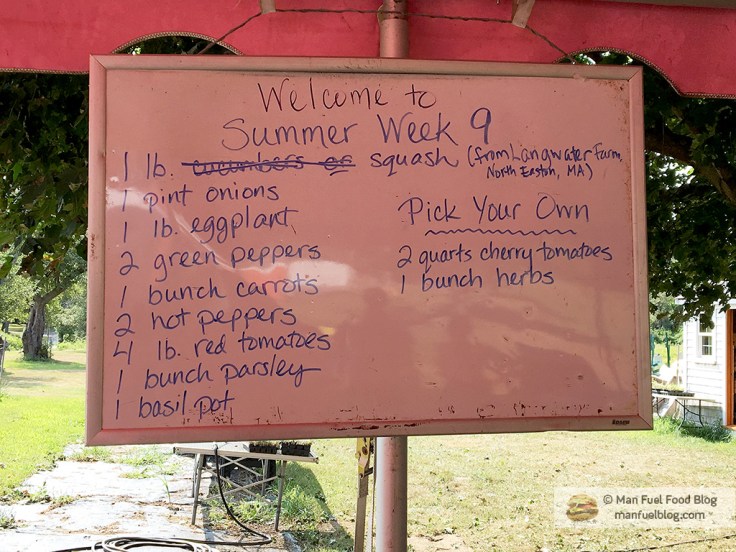 Welcome to
Summer Week 9
1 lb. cucumbers or squash (from Langwater Farm,
North Easton, MA)
1 pint onions
1 lb. eggplant
2 green peppers
1 bunch carrots
2 hot peppers
4 lb. red tomatoes
1 bunch parsley
1 basil pot
Pick Your Own
2 quarts cherry tomatoes
1 bunch herbs
© Man Fuel Food Blog
manfuelblog.com